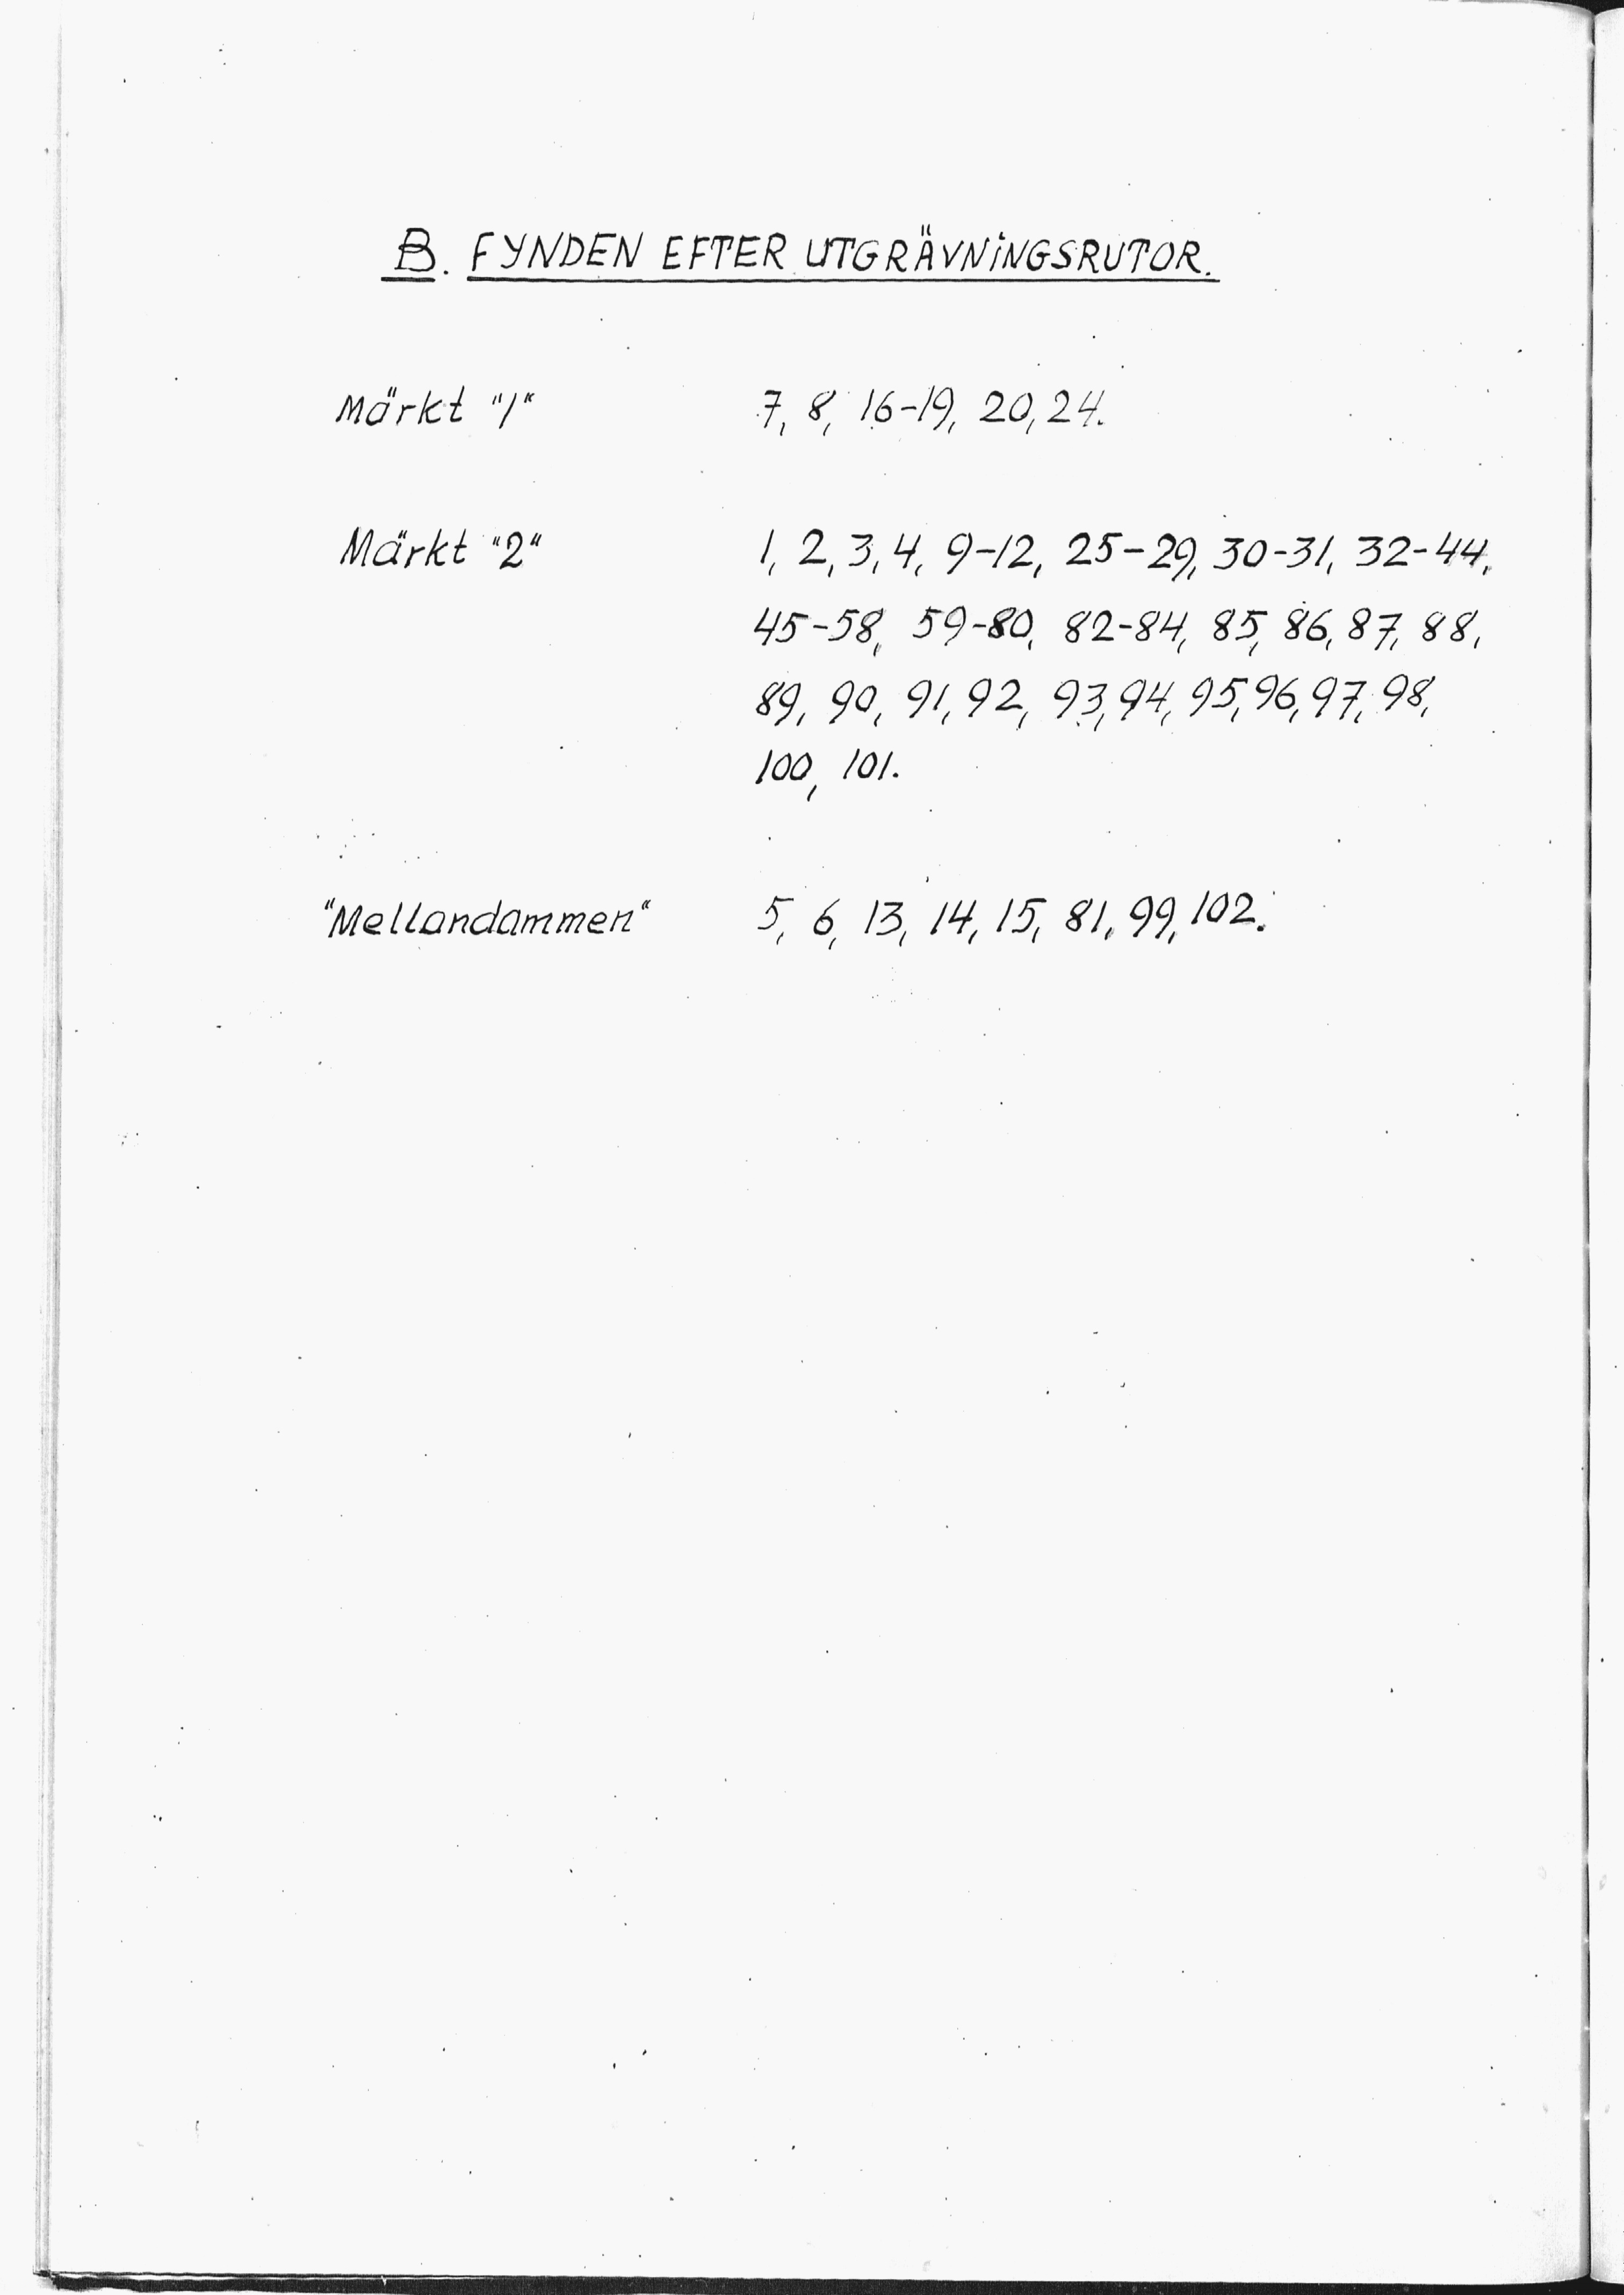 B. FYNDEN EFTER UTGRÄVNINGSRUTOR.
Märkt "1" 7, 8, 16-19, 20, 24.
Märkt "2" 1, 2, 3, 4, 9-12, 25-29, 30-31, 32-44,
45-58, 59-80, 82-84, 85, 86, 87, 88,
89, 90, 91, 92, 93, 94, 95, 96, 97, 98,
100, 101.
"Mellandammen" 5, 6, 13, 14, 15, 81, 99, 102.